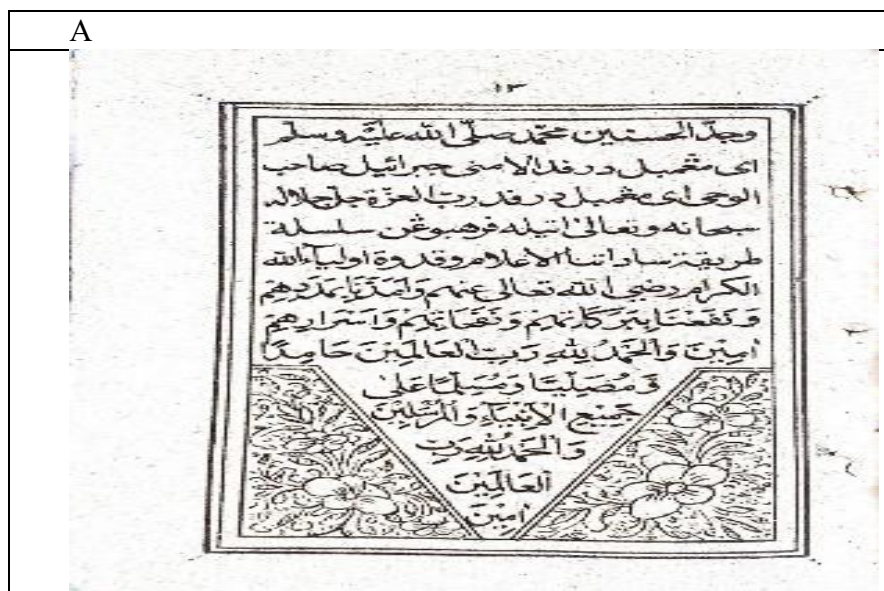 A
١٣
وجدّ الحسنين محمّد صلّى الله عليه وسلّم
اى مڠمبيل درفد الامين جبرائيل صاحب
الوحي اى مڠمبيل درفد ربّ العزّة جلّ جلاله
سبحانه وتعالى اتيله فرهبوڠن سلسلة
طريقة ساداتنا الاعلام وقدوة اولياء الله
الكرام رضي الله تعالى عنهم وَاَمَدَّنَا بِمَدَدِهِمْ
وَنَفَعَنَا بِبَرَكَاتِهِمْ وَنَفَحَاتِهِمْ وَاَسْرَارِهِمْ
اٰمِيْنَ وَالْحَمْدُ لِلّٰهِ رَبِّ الْعَالَمِيْنَ حَامِدًا
وَمُصَلِّيًا وَمُسَلِّمًا عَلٰى
جَمِيْعِ الْاَنْبِيَآءِ وَالْمُرْسَلِيْنَ
وَالْحَمْدُ لِلّٰهِ رَبِّ
الْعَالَمِيْنَ
اٰمِيْنَ